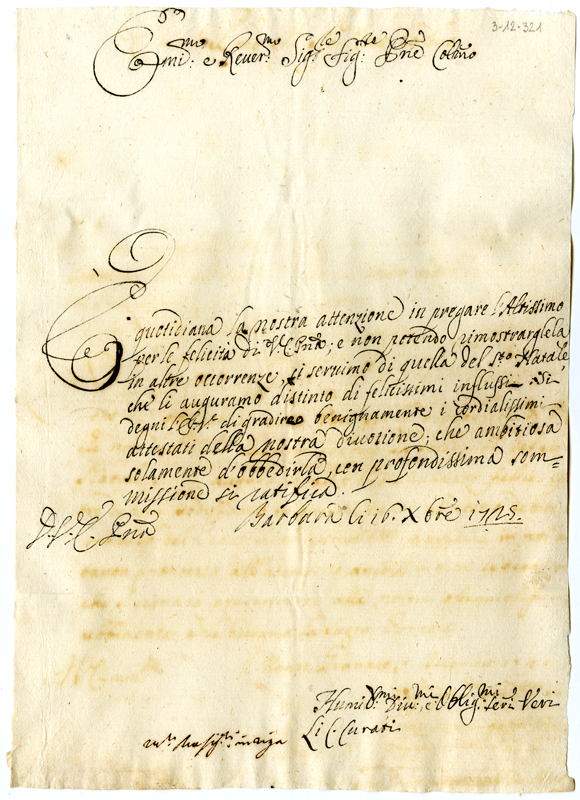 3-12-321
Em̃i:mo e Rever:mo Sig:re Sig:re Pñe Colmo
È quotidiana la nostra attenzione in pregare l'Altissimo
per le felicità di V. E. Pñã; e non potendo rimostrargliela
in altre occorrenze, ci servimo di quella del S:to Natale,
che li auguramo distinto di felicissimi influssi. Si
degni l'E. V. di gradire benignamente i cordialissimi
attestati della nostra divozione; che ambitiosa
solamente d'obbedirla, con profondissima som=
missione si ratifica.
Barbara li 16. Xbre 1725.
D. V. E. Pñã
Humil:mi Div:mi, e Oblig:mi Seri Veri
Li C: Curati